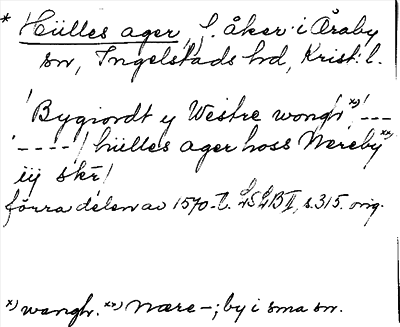 * Hülles ager, f. åker i Öraby
sn, Ingelstads hd, Krist: l.
'Bygiordt y Westre wongh x)' ---
'----' hülles ager hoss Næreby xx)
iij skr̄'
förra delen av 1570-t. LSLB II, s. 315. orig.
x) wangh. xx) Nære-; by i sma sn.